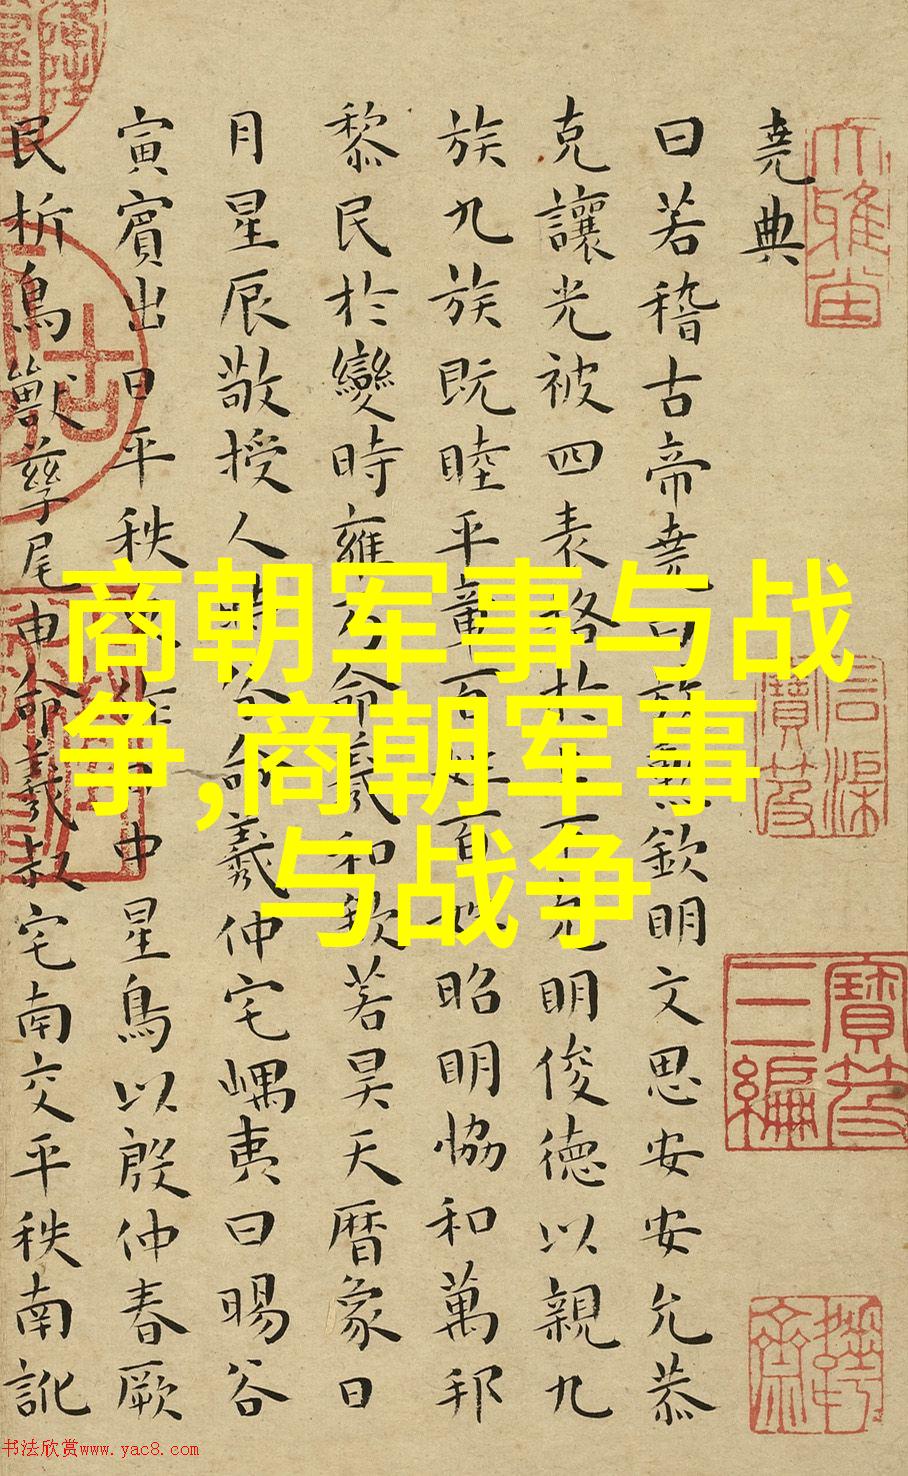 堯典
曰若稽古帝堯曰放勲欽明文思安安允恭
克讓光被四表格於上下克明俊德以親九
族九族既睦平章百姓百姓昭明恊和萬邦
黎民於變時雍乃命羲和欽若昊天曆象日
月星辰敬授人時分命羲仲宅嵎夷曰暘谷
寅賓出日平秩東作日中星鳥以殷仲春厥
民析鳥獸孳尾申命羲叔宅南交平秩南訛
商朝军事与战
争,商朝军事
与战争
寶笈三編
书法欣赏www.yac8.com